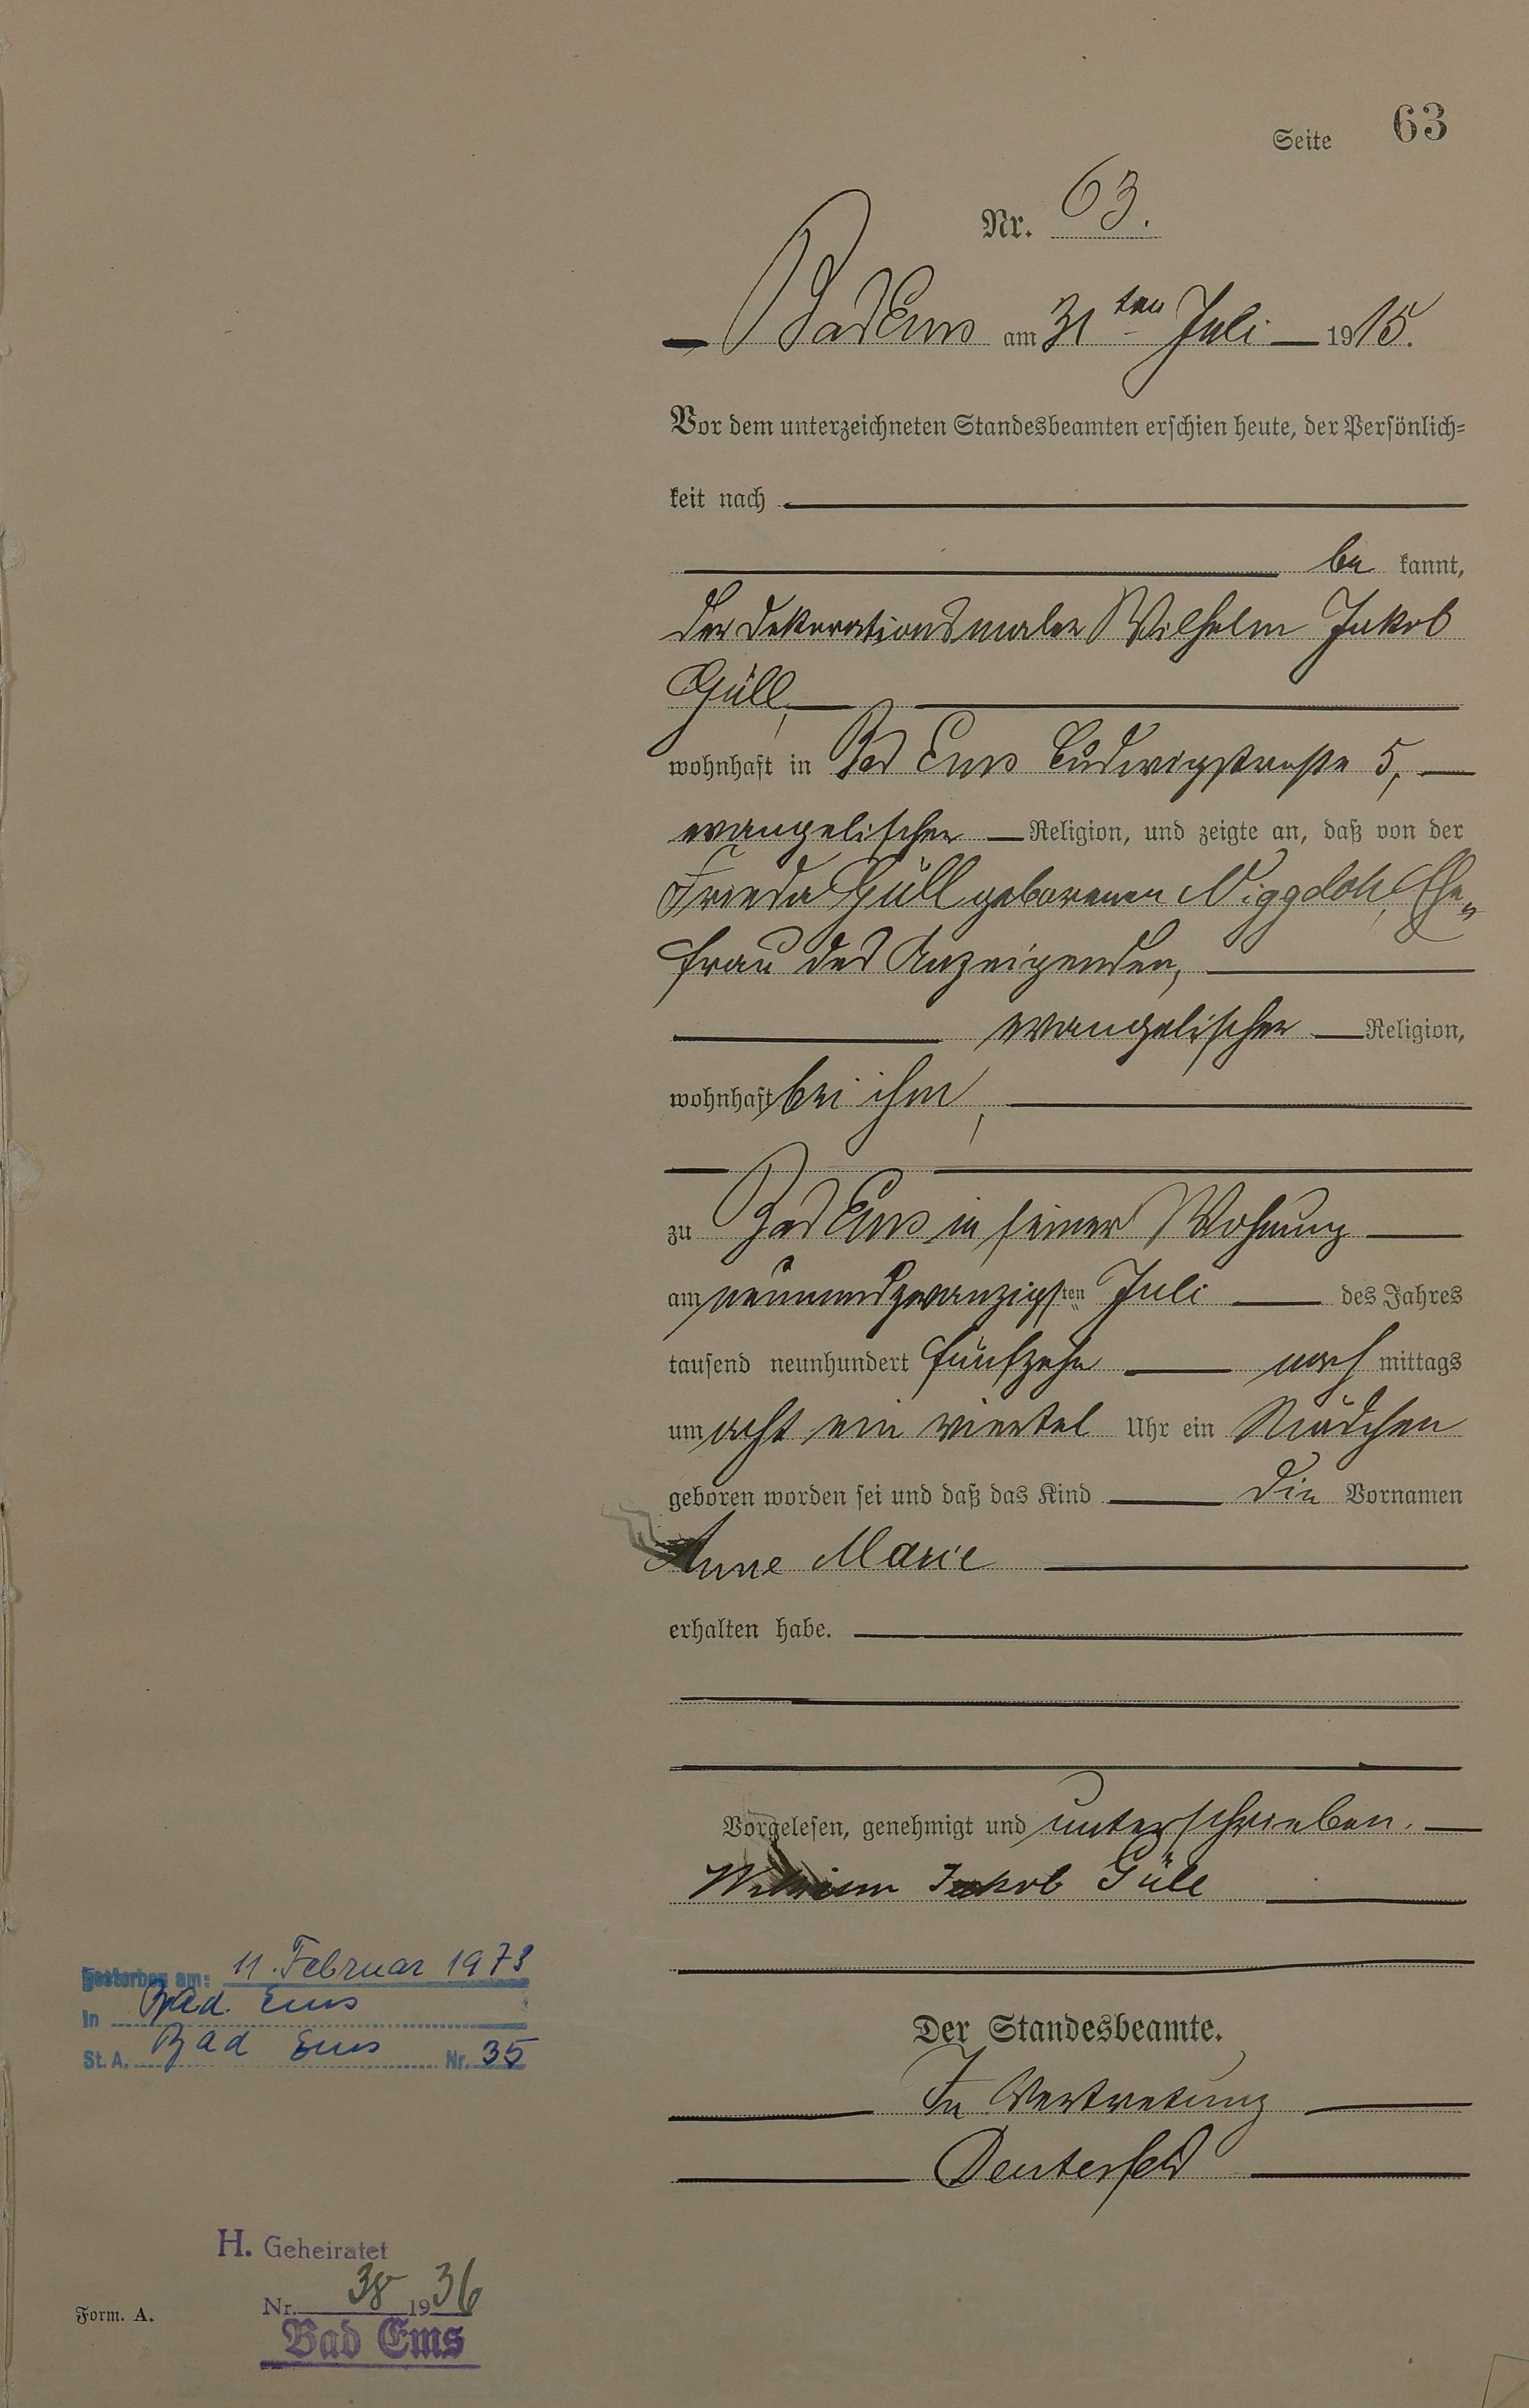 Seite 63
Nr. 63.
Bad Ems am 31ten Juli 1915.
Vor dem unterzeichneten Standesbeamten erschien heute, der Persönlich=
keit nach
be kannt,
der Dekorationsmaler Wilhelm Jakob
Güll,
wohnhaft in Bad Ems Ludwigstraße 5,
evangelischer Religion, und zeigte an, daß von der
Frieda Güll geborenen Niggdoh, Ehe=
frau des Anzeigenden,
evangelischer Religion,
wohnhaft bei ihm,
zu Bad Ems in seiner Wohnung
am neunundzwanzigsten Juli des Jahres
tausend neunhundert fünfzehn nach mittags
um acht ein viertel Uhr ein Mädchen
geboren worden sei und daß das Kind die Vornamen
Anne Marie
erhalten habe.
Vorgelesen, genehmigt und unterschrieben.
Wilhelm Jakob Güll
Gestorben am: 11. Februar 1973
in Bad. Ems
St. A. Bad Ems Nr. 35
Der Standesbeamte.
In Vertretung
Deuterfeld
H. Geheiratet
Nr. 38 1936
Bad Ems
Form. A.